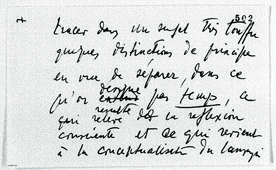 + 502
tracer dans un sujet très touffu
quelques distinctions de principe
en vue de séparer, dans ce
qu'on désigne par temps, ce
qui relève de la réflexion
consciente et ce qui revient
à la conceptualisation du langage